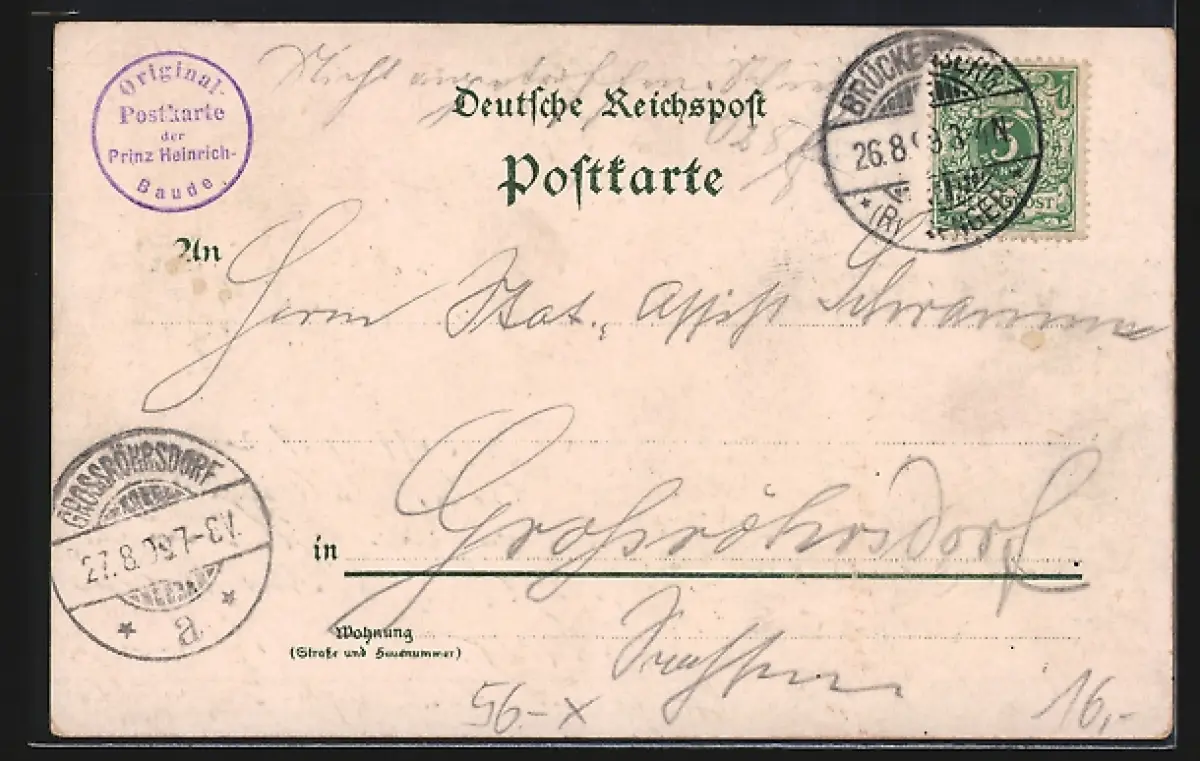 Original-
Postkarte
der
Prinz Heinrich-
Baude.
Deutsche Reichspost
Postkarte
BRÜCKENBERG
26.8. 3-4N
* (R) *
5
An
Herrn Stat. Assist Schramm
GROSSRÖHRSDORF
27.8. 7-8V.
* a *
in Grossröhrsdorf
Wohnung
(Straße und Hausnummer)
Sachsen
56-x
16,-